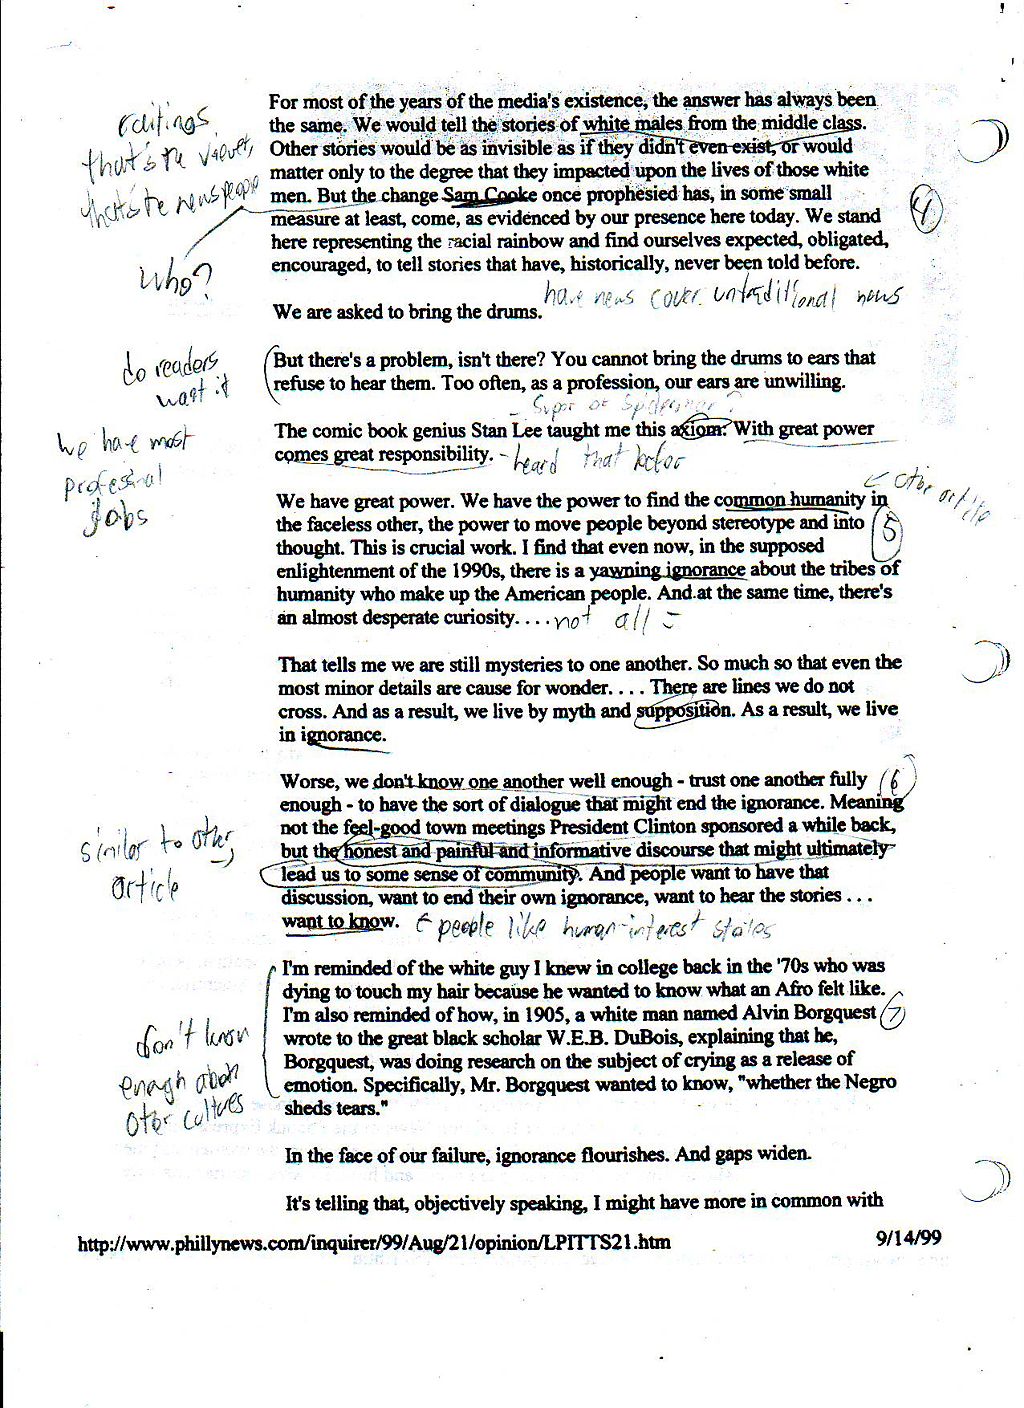 For most of the years of the media's existence, the answer has always been
the same. We would tell the stories of white males from the middle class.
Other stories would be as invisible as if they didn't even exist, or would
matter only to the degree that they impacted upon the lives of those white
men. But the change Sam Cooke once prophesied has, in some small
measure at least, come, as evidenced by our presence here today. We stand
here representing the racial rainbow and find ourselves expected, obligated,
encouraged, to tell stories that have, historically, never been told before.
editings
that's the viewer,
that's the newspeople
who?
4
have news cover untraditional news
We are asked to bring the drums.
do readers
want it
But there's a problem, isn't there? You cannot bring the drums to ears that
refuse to hear them. Too often, as a profession, our ears are unwilling.
- Super or Spiderman?
The comic book genius Stan Lee taught me this axiom: With great power
comes great responsibility. - heard that before
we have most
professinal
jobs
← other article
We have great power. We have the power to find the common humanity in
the faceless other, the power to move people beyond stereotype and into
thought. This is crucial work. I find that even now, in the supposed
enlightenment of the 1990s, there is a yawning ignorance about the tribes of
humanity who make up the American people. And at the same time, there's
an almost desperate curiosity. . . . not all
5
That tells me we are still mysteries to one another. So much so that even the
most minor details are cause for wonder. . . . There are lines we do not
cross. And as a result, we live by myth and supposition. As a result, we live
in ignorance.
Worse, we don't know one another well enough - trust one another fully
enough - to have the sort of dialogue that might end the ignorance. Meaning
not the feel-good town meetings President Clinton sponsored a while back,
but the honest and painful and informative discourse that might ultimately
lead us to some sense of community. And people want to have that
discussion, want to end their own ignorance, want to hear the stories . . .
want to know. ← people like human-interest stories
6
similar to other
article
I'm reminded of the white guy I knew in college back in the '70s who was
dying to touch my hair because he wanted to know what an Afro felt like.
I'm also reminded of how, in 1905, a white man named Alvin Borgquest
wrote to the great black scholar W.E.B. DuBois, explaining that he,
Borgquest, was doing research on the subject of crying as a release of
emotion. Specifically, Mr. Borgquest wanted to know, "whether the Negro
sheds tears."
7
don't know
enough about
other cultures
In the face of our failure, ignorance flourishes. And gaps widen.
It's telling that, objectively speaking, I might have more in common with
http://www.phillynews.com/inquirer/99/Aug/21/opinion/LPITTS21.htm
9/14/99